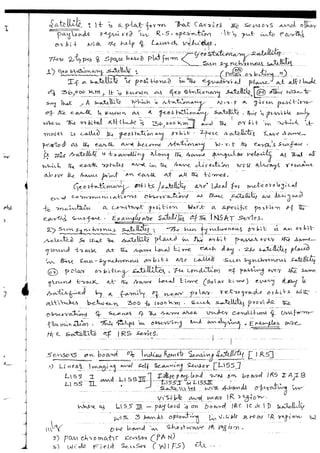 Satellite : It is a platform that carries the sensors and other
payloads required in R.S. operation. It's put into Earth's
orbit with the help of launch vehicles.
There 2 types of Space based platform
Geostationary satellite
Sun synchronous satellite
1) Geostationary satellite :
(near orbiting)
If a satellite is positioned in the equatorial plane at altitude
of 36,000 km, it is known as Geo stationary satellite. (or) we
say that, A satellite which is stationary w.r.t a given position
of the earth is known as a geostationary satellite. It's possible only
when the orbital altitude is 36,000 km and the orbit in which it
moves is called the geostationary orbit. These satellites have same
period as the earth and become stationary w.r.t the earth's surface.
This satellite is travelling along the same angular velocity as that at
which the earth rotates and in the same direction will always remains
above the same point on earth at all the times.
Geostationary orbits/satellite are ideal for meteorological
and communications observations as these satellites are designed
to maintain a constant position w.r.t a specific portion of the
earth's surface. Examples are Satellites of the INSAT Series.
2) Sun synchronous satellite : The sun synchronous orbit is an orbit
selected so that the satellite placed in this orbit passes over the same
ground track at the same local time each day. The satellites placed
in these sun-synchronous orbits are called sun synchronous satellites
(or) polar orbiting satellites. The condition of passing over the same
ground track at the same local time (solar time) every day is
satisfied by a family of near polar retrograde orbits with
altitudes between 300 to 1000 km. Such satellites provide the
observation of scenes of the same area under condition of uniform
illumination. This helps in observing and analysing. Examples are
the satellites of IRS series.
Sensors on board of Indian Remote Sensing Satellites [IRS]
1) Linear Imaging and Self Scanning Sensor [LISS]
LISS I
LISS II
and LISS III
These payload was on board IRS 1A, 1B
LISS I & LISS II
Satellites with 4 bands operating in
visible and near IR region.
where as LISS III - payload is on board IRS 1C & 1D Satellites
with 3 bands operating in visible or near IR region and
one band in shortwave IR region.
2) Panchromatic Sensor (PAN)
3) Wide Field Sensor (WIFS) etc..